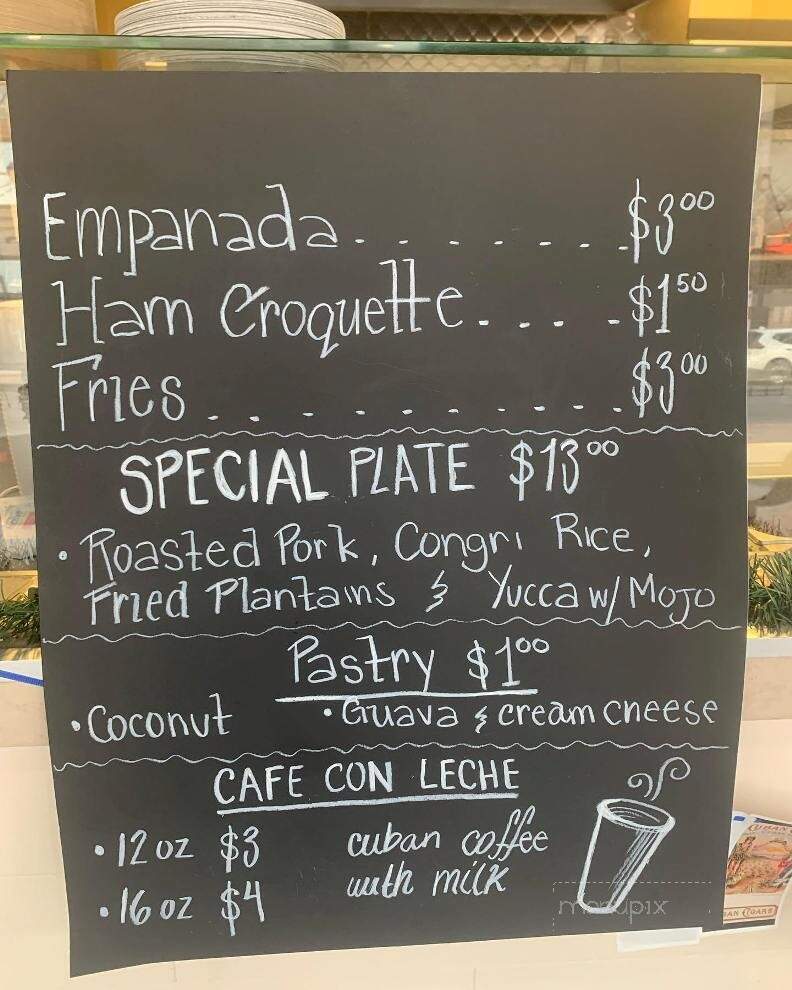 Empanada. . . . . . . . $3.00
Ham Croquette. . . . . $1.50
Fries . . . . . . . . . . $3.00
SPECIAL PLATE $13.00
• Roasted Pork, Congri Rice,
Fried Plantains & Yucca w/ Mojo
Pastry $1.00
• Coconut • Guava & cream cheese
CAFE CON LECHE
• 12 oz $3 cuban coffee
• 16 oz $4 with milk
menupix